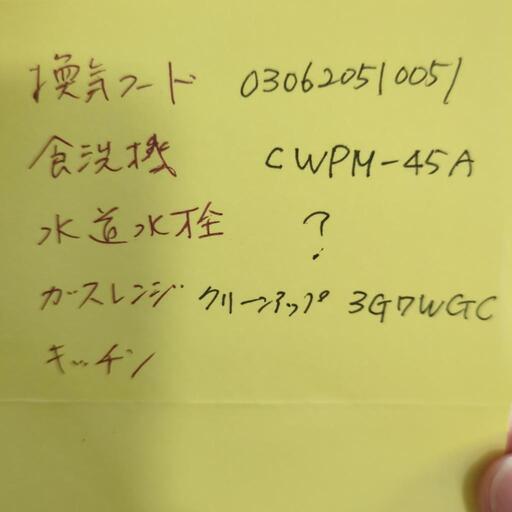 換気フード 030620510051
食洗機 CWPM-45A
水道水栓 ?
ガスレンジ クリーンアップ 3G7WGC
キッチン